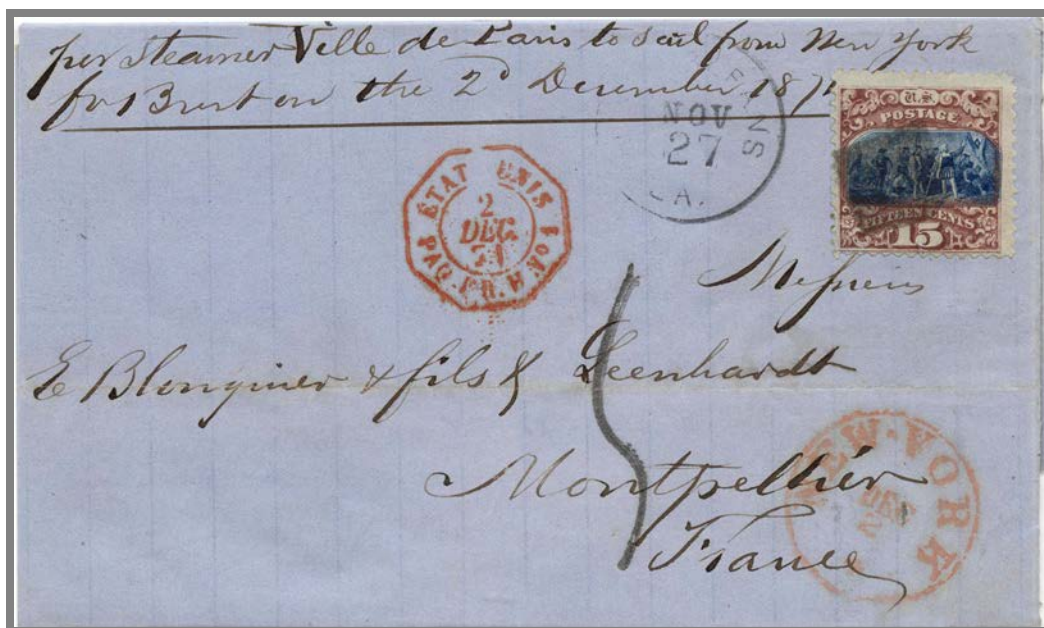 per Steamer Ville de Paris to sail from New York
for Brest on the 2d December 1871
NOV
27
LA.
U.S.
POSTAGE
FIFTEEN CENTS
15
ETAT UNIS
2
DEC.
71
PAQ. FR. H No 1
Messieurs
E Blouquier & fils & Leenhardt
5
Montpellier
France
NEW-YORK
DEC
2